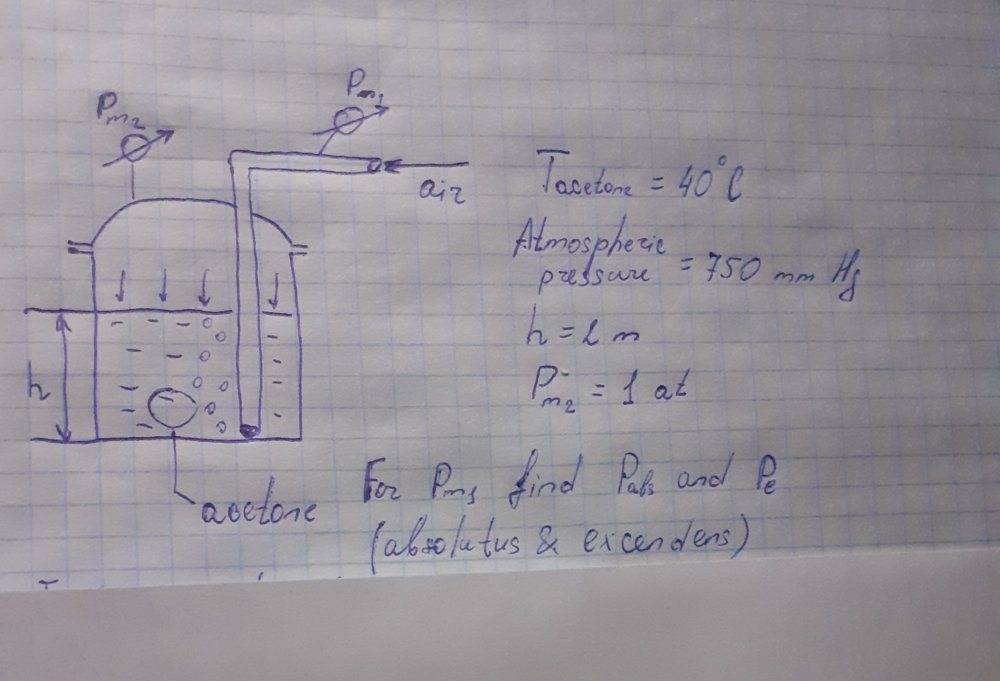 Pm2
Pm1
air
Tacetone = 40°C
Atmospheric
pressure = 750 mm Hg
h = 2 m
Pm2 = 1 at
h
acetone
For Pm1 find Pabs and Pe
(absolutus & excendens)